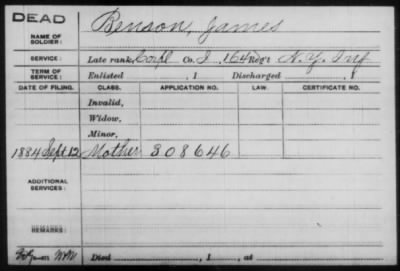 DEAD
NAME OF SOLDIER: Benson, James
SERVICE: Late rank, Corpl Co. I, 164 Reg't N.Y. Inf
TERM OF SERVICE: Enlisted , 1 Discharged , 1
DATE OF FILING. CLASS. APPLICATION NO. LAW. CERTIFICATE NO.
Invalid,
Widow,
Minor,
1884 Sept 12 Mother 308646
ADDITIONAL SERVICES:
REMARKS:
Died , 1 , at